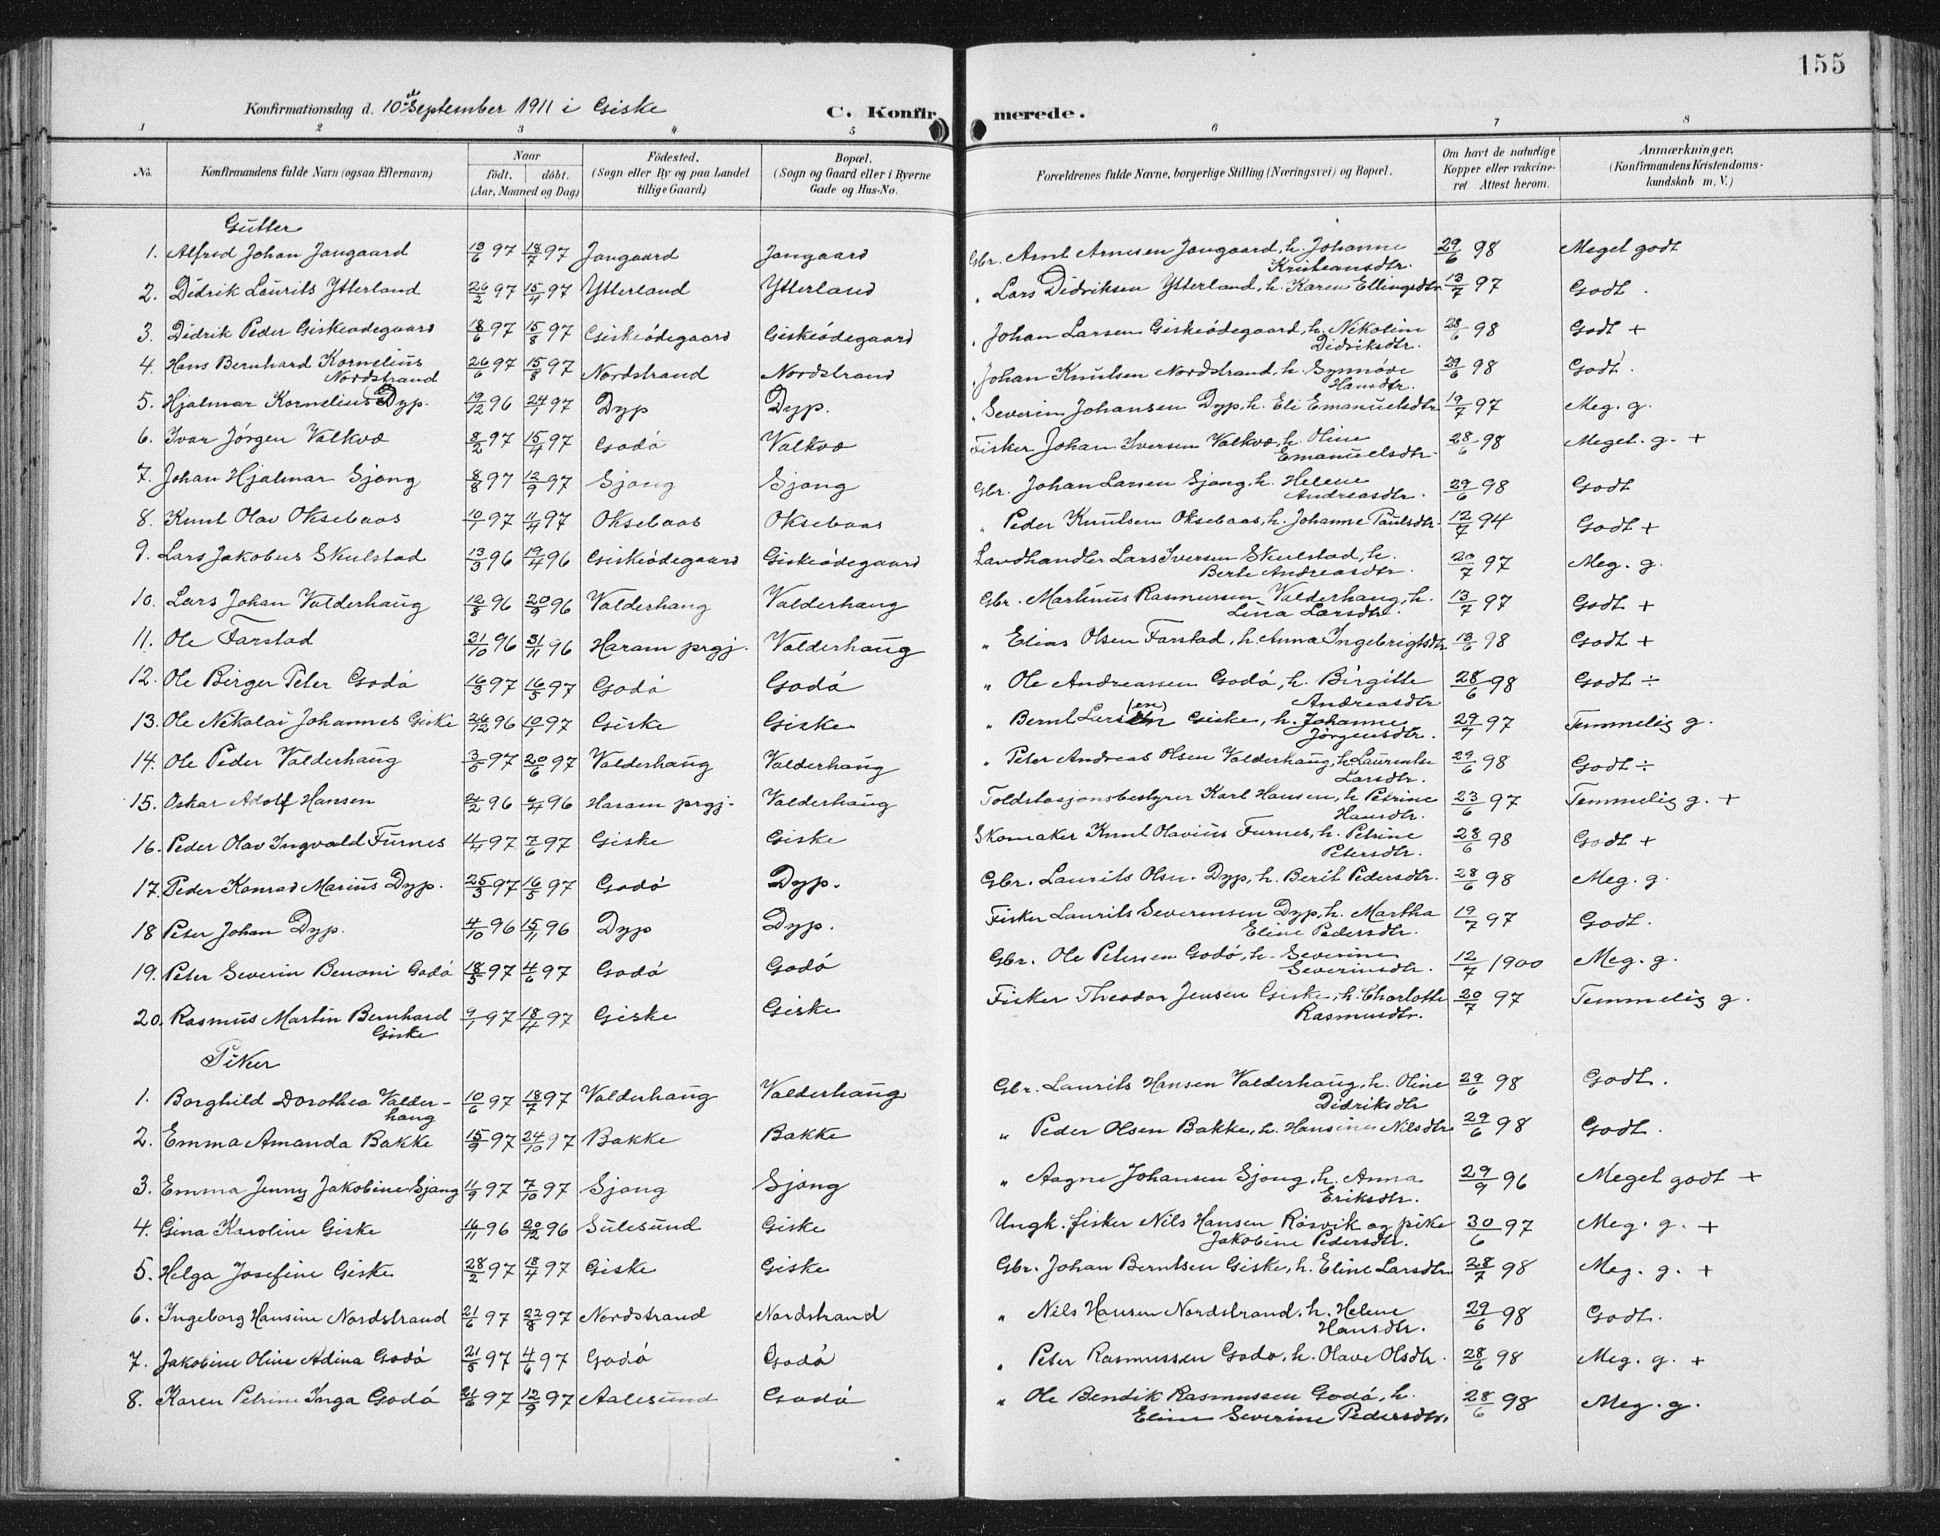 155
Konfirmationsdag d. 10de September 1911 i Giske C. Konfirmerede.
1 2 3 4 5 6 7 8
No. Konfirmandens fulde Navn (ogsaa Efternavn) Naar födt. döbt. (Aar, Maaned og Dag) Födested. (Sogn eller By og paa Landet tillige Gaard) Bopæl. (Sogn og Gaard eller i Byerne Gade og Hus-No. Forældrenes fulde Navne, borgerlige Stilling (Næringsvei) og Bopæl. Om havt de naturlige Kopper eller vakcineret. Attest herom. Anmærkninger. (Konfirmandens Kristendomskundskab m. V.)
Gutter
1. Alfred Johan Jangaard 13/6 97 18/7 97 Jangaard Jangaard Gbr. Arnt Arnesen Jangaard, h. Johanne Kristiansdtr. 29/6 98 Meget godt
2. Didrik Laurits Ytterland 26/2 97 15/4 97 Ytterland Ytterland " Lars Didriksen Ytterland, h. Karen Ellingsdtr 13/7 97 Godt.
3. Didrik Peder Giskeødegaard 18/6 97 15/8 97 Giskeødegaard Giskeødegaard " Johan Larsen Giskeødegaard, h. Nikoline Didriksdtr. 28/6 98 Godt +
4. Hans Bernhard Kornelius Nordstrand 26/6 97 15/8 97 Nordstrand Nordstrand " Johan Knutsen Nordstrand, h. Synnøve Hansdtr. 29/6 98 Godt.
5. Hjalmar Kornelius Dyp. 19/12 96 24/1 97 Dyp Dyp. " Severin Johansen Dyp, h. Eli Emanuelsdtr 19/7 97 Meg. g.
6. Ivar Jørgen Valkvæ 8/2 97 15/4 97 Godø Valkvæ Fisker Johan Iversen Valkvæ, h. Oline Emanuelsdtr. 28/6 98 Meget. g. +
7. Johan Hjalmar Sjong 8/8 97 12/9 97 Sjong Sjong Gbr. Johan Larsen Sjong, h. Helene Andreasdtr. 29/6 98 Godt
8. Knut Olav Oksebaas 10/1 97 11/4 97 Oksebaas Oksebaas " Peder Knutsen Oksebaas, h. Johanne Paulsdtr. 12/7 94 Godt +
9. Lars Jakobus Skulstad 13/3 96 19/4 96 Giskeødegaard Giskeødegaard Landhandler Lars Iversen Skulstad, h. Berte Andreasdtr. 20/7 97 Meg. g.
10. Lars Johan Valderhaug 12/8 96 20/9 96 Valderhaug Valderhaug Gbr. Martinus Rasmussen Valderhaug, h. Lina Larsdtr. 13/7 97 Godt +
11. Ole Farstad 31/10 96 31/11 96 Haram prgj. Valderhaug " Elias Olsen Farstad, h. Anna Ingebrigtsdtr 13/6 98 Godt +
12. Ole Birger Peter Godø 16/3 97 16/5 97 Godø Godø " Ole Andreassen Godø, h. Birgitte Andreasdtr 28/6 98 Godt ÷
13. Ole Nikolai Johannes Giske 26/12 96 10/1 97 Giske Giske " Bernt Larsen (en) Giske, h. Johanne Jørgensdtr. 29/7 97 Temmelig g.
14. Ole Peder Valderhaug 3/5 97 20/6 97 Valderhaug Valderhaug " Peter Andreas Olsen Valderhaug, h. Laurentse Larsdtr. 29/6 98 Godt ÷
15. Oskar Adolf Hansen 96 96 Haram prgj. Valderhaug Toldstasjonsbestyrer Karl Hansen, h. Petrine Hansdtr. 23/6 97 Temmelig g. +
16. Peder Olav Ingvald Furnes 11/4 97 7/6 97 Giske Giske Skomaker Knut Olavius Furnes, h. Petrine Petersdtr. 28/6 98 Godt +
17. Peder Konrad Marius Dyp. 25/3 97 16/5 97 Godø Dyp. Gbr. Laurits Olsn. Dyp, h. Berit Pedersdtr. 28/6 98 Meg. g.
18 Peter Johan Dyp. 4/10 96 15/11 96 Dyp Dyp. Fisker Laurits Severinsen Dyp, h. Martha Eline Pedersdtr. 19/7 97 Godt.
19. Peter Severin Benoni Godø 18/5 97 4/6 97 Godø Godø Gbr. Ole Petersen Godø, h. Severine Severinsdtr. 12/7 1900 Meg. g.
20. Rasmus Martin Bernhard Giske 9/1 97 18/4 97 Giske Giske Fisker Theodor Jensen Giske, h. Charlotte Rasmusdtr. 20/7 97 Temmelig g.
Piker
1. Borghild Dorothea Valderhaug 10/6 97 18/7 97 Valderhaug Valderhaug Gbr. Laurits Hansen Valderhaug, h. Oline Didriksdtr 29/6 98 Godt.
2. Emma Amanda Bakke 15/9 97 24/10 97 Bakke Bakke " Peder Olsen Bakke, h. Hansine Nilsdtr 29/6 98 Godt.
3. Emma Jenny Jakobine Sjong 11/9 97 7/10 97 Sjong Sjong " Aagne Johansen Sjong, h. Anna Eriksdtr. 29/9 96 Meget godt +
4. Gina Karoline Giske 16/11 96 20/12 96 Sulesund Giske Ungk. fisker Nils Hansen Røsvik og pike Jakobine Pedersdtr. 30/6 97 Meg. g. +
5. Helga Josefine Giske 28/2 97 18/4 97 Giske Giske Gbr. Johan Berntsen Giske, h. Eline Larsdtr 28/7 98 Meg. g. +
6. Ingeborg Hansine Nordstrand 21/6 97 22/8 97 Nordstrand Nordstrand " Nils Hansen Nordstrand. h. Helene Hansdtr. 29/6 98 Godt.
7. Jakobine Oline Adina Godø 21/5 97 4/6 97 Godø Godø " Peter Rasmussen Godø, h. Olave Olsdtr. 28/6 98 Meg. g. +
8. Karen Petrine Inga Godø 21/6 97 12/9 97 Aalesund Godø " Ole Bendik Rasmussen Godø, h. Eline Severine Pedersdtr. 28/6 98 Meg. g.